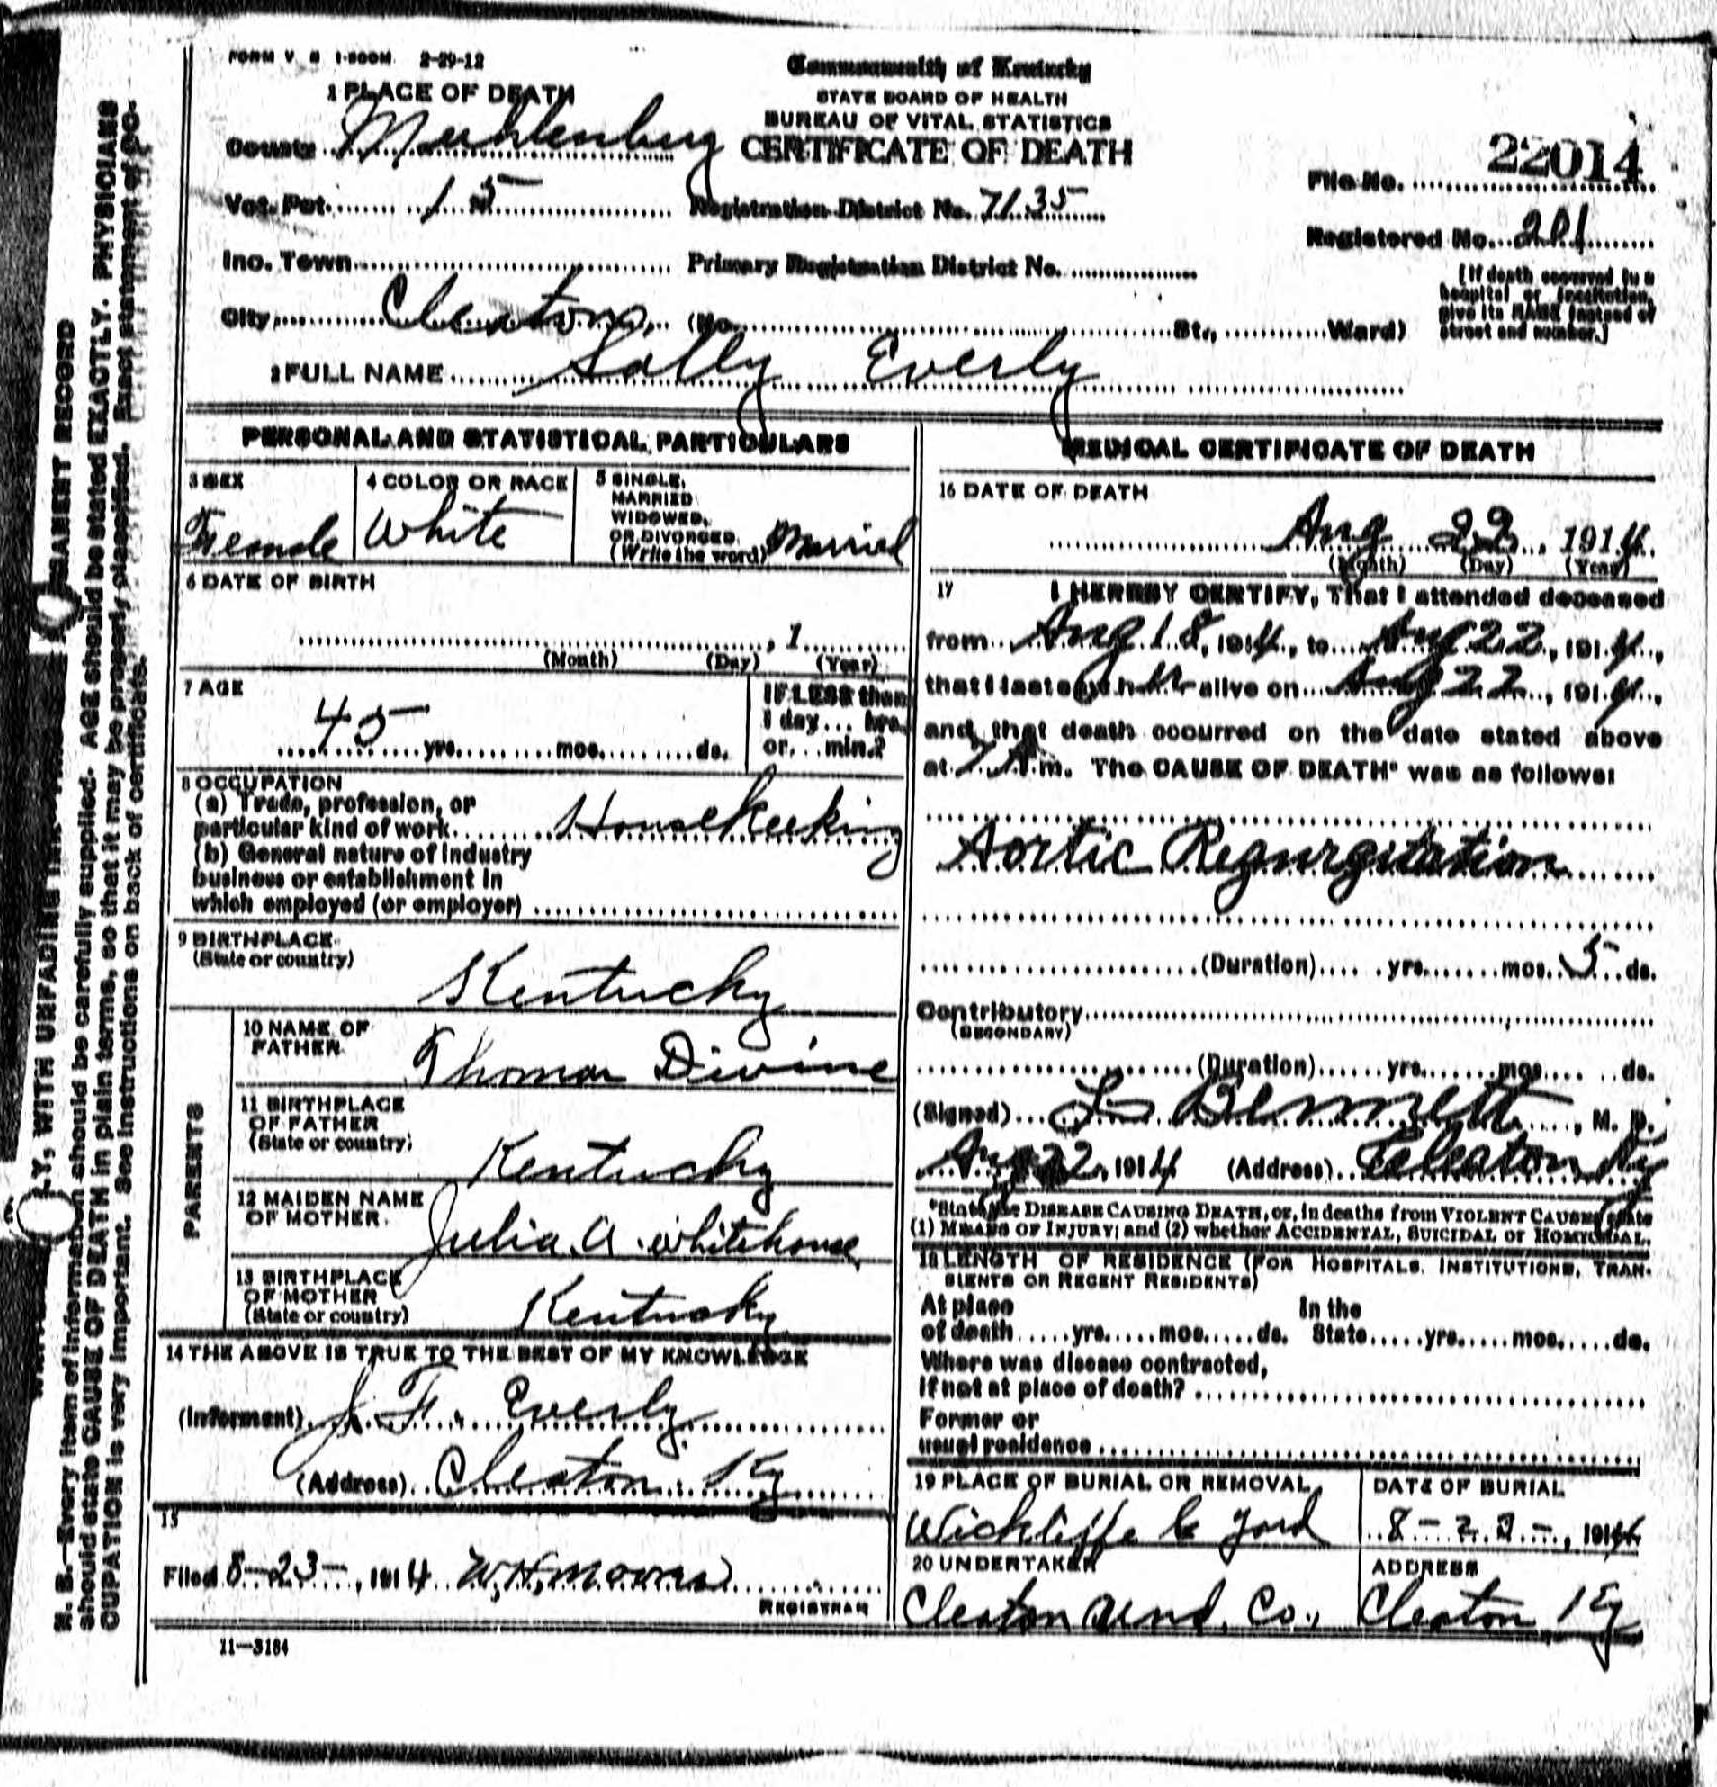 FORM V. S. 1-500M. 2-29-12
Commonwealth of Kentucky
STATE BOARD OF HEALTH
BUREAU OF VITAL STATISTICS
CERTIFICATE OF DEATH
1 PLACE OF DEATH
County Muhlenburg
Vot. Pct. 15 Registration District No. 7135
Inc. Town Primary Registration District No.
City Cleaton, (No. St., Ward)
File No. 22014
Registered No. 201
[If death occurred in a
hospital or institution,
give its NAME instead of
street and number.]
2 FULL NAME Sally Everly
PERSONAL AND STATISTICAL PARTICULARS
3 SEX
Female
4 COLOR OR RACE
White
5 SINGLE,
MARRIED
WIDOWED,
OR DIVORCED.
(Write the word) Married
6 DATE OF BIRTH
, 1
(Month) (Day) (Year)
7 AGE
45 yrs. mos. ds.
IF LESS than
1 day... hrs.
or... min.?
8 OCCUPATION
(a) Trade, profession, or
particular kind of work. HouseKeeking
(b) General nature of industry
business or establishment in
which employed (or employer)
9 BIRTHPLACE
(State or country)
Kentucky
PARENTS
10 NAME OF
FATHER Thomas Divine
11 BIRTHPLACE
OF FATHER
(State or country)
Kentucky
12 MAIDEN NAME
OF MOTHER Julia A. Whitehouse
13 BIRTHPLACE
OF MOTHER
(State or country) Kentucky
14 THE ABOVE IS TRUE TO THE BEST OF MY KNOWLEDGE
(Informent) J. F. Everly
(Address) Cleaton, Ky
15
Filed 8-23-, 1914 W.H. Moore
REGISTRAR
11-3184
MEDICAL CERTIFICATE OF DEATH
16 DATE OF DEATH
Aug 22, 1914
(Month) (Day) (Year)
17 I HEREBY CERTIFY, That I attended deceased
from Aug 18, 1914, to Aug 22, 1914,
that I last saw her alive on Aug 22, 1914,
and that death occurred on the date stated above
at 7 A.m. The CAUSE OF DEATH* was as follows:
Aortic Regurgitation
(Duration) yrs. mos. 5 ds.
Contributory
(SECONDARY)
(Duration) yrs. mos. ds.
(Signed) Bennett, M. D.
Aug 22, 1914 (Address) Cleaton Ky
*State the DISEASE CAUSING DEATH, or, in deaths from VIOLENT CAUSES state
(1) MEANS OF INJURY; and (2) whether ACCIDENTAL, SUICIDAL or HOMICIDAL.
18 LENGTH OF RESIDENCE (FOR HOSPITALS, INSTITUTIONS, TRAN-
SIENTS OR RECENT RESIDENTS)
At place In the
of death yrs. mos. ds. State yrs. mos. ds.
Where was disease contracted,
if not at place of death?
Former or
usual residence
19 PLACE OF BURIAL OR REMOVAL
Wickliffe G Yard
DATE OF BURIAL
8-22-, 1914
20 UNDERTAKER
Cleaton Und. Co.,
ADDRESS
Cleaton Ky
N. B.—Every item of information should be carefully supplied. AGE should be stated EXACTLY. PHYSICIANS
should state CAUSE OF DEATH in plain terms, so that it may be properly classified. Exact statement of OC-
CUPATION is very important. See instructions on back of certificate.